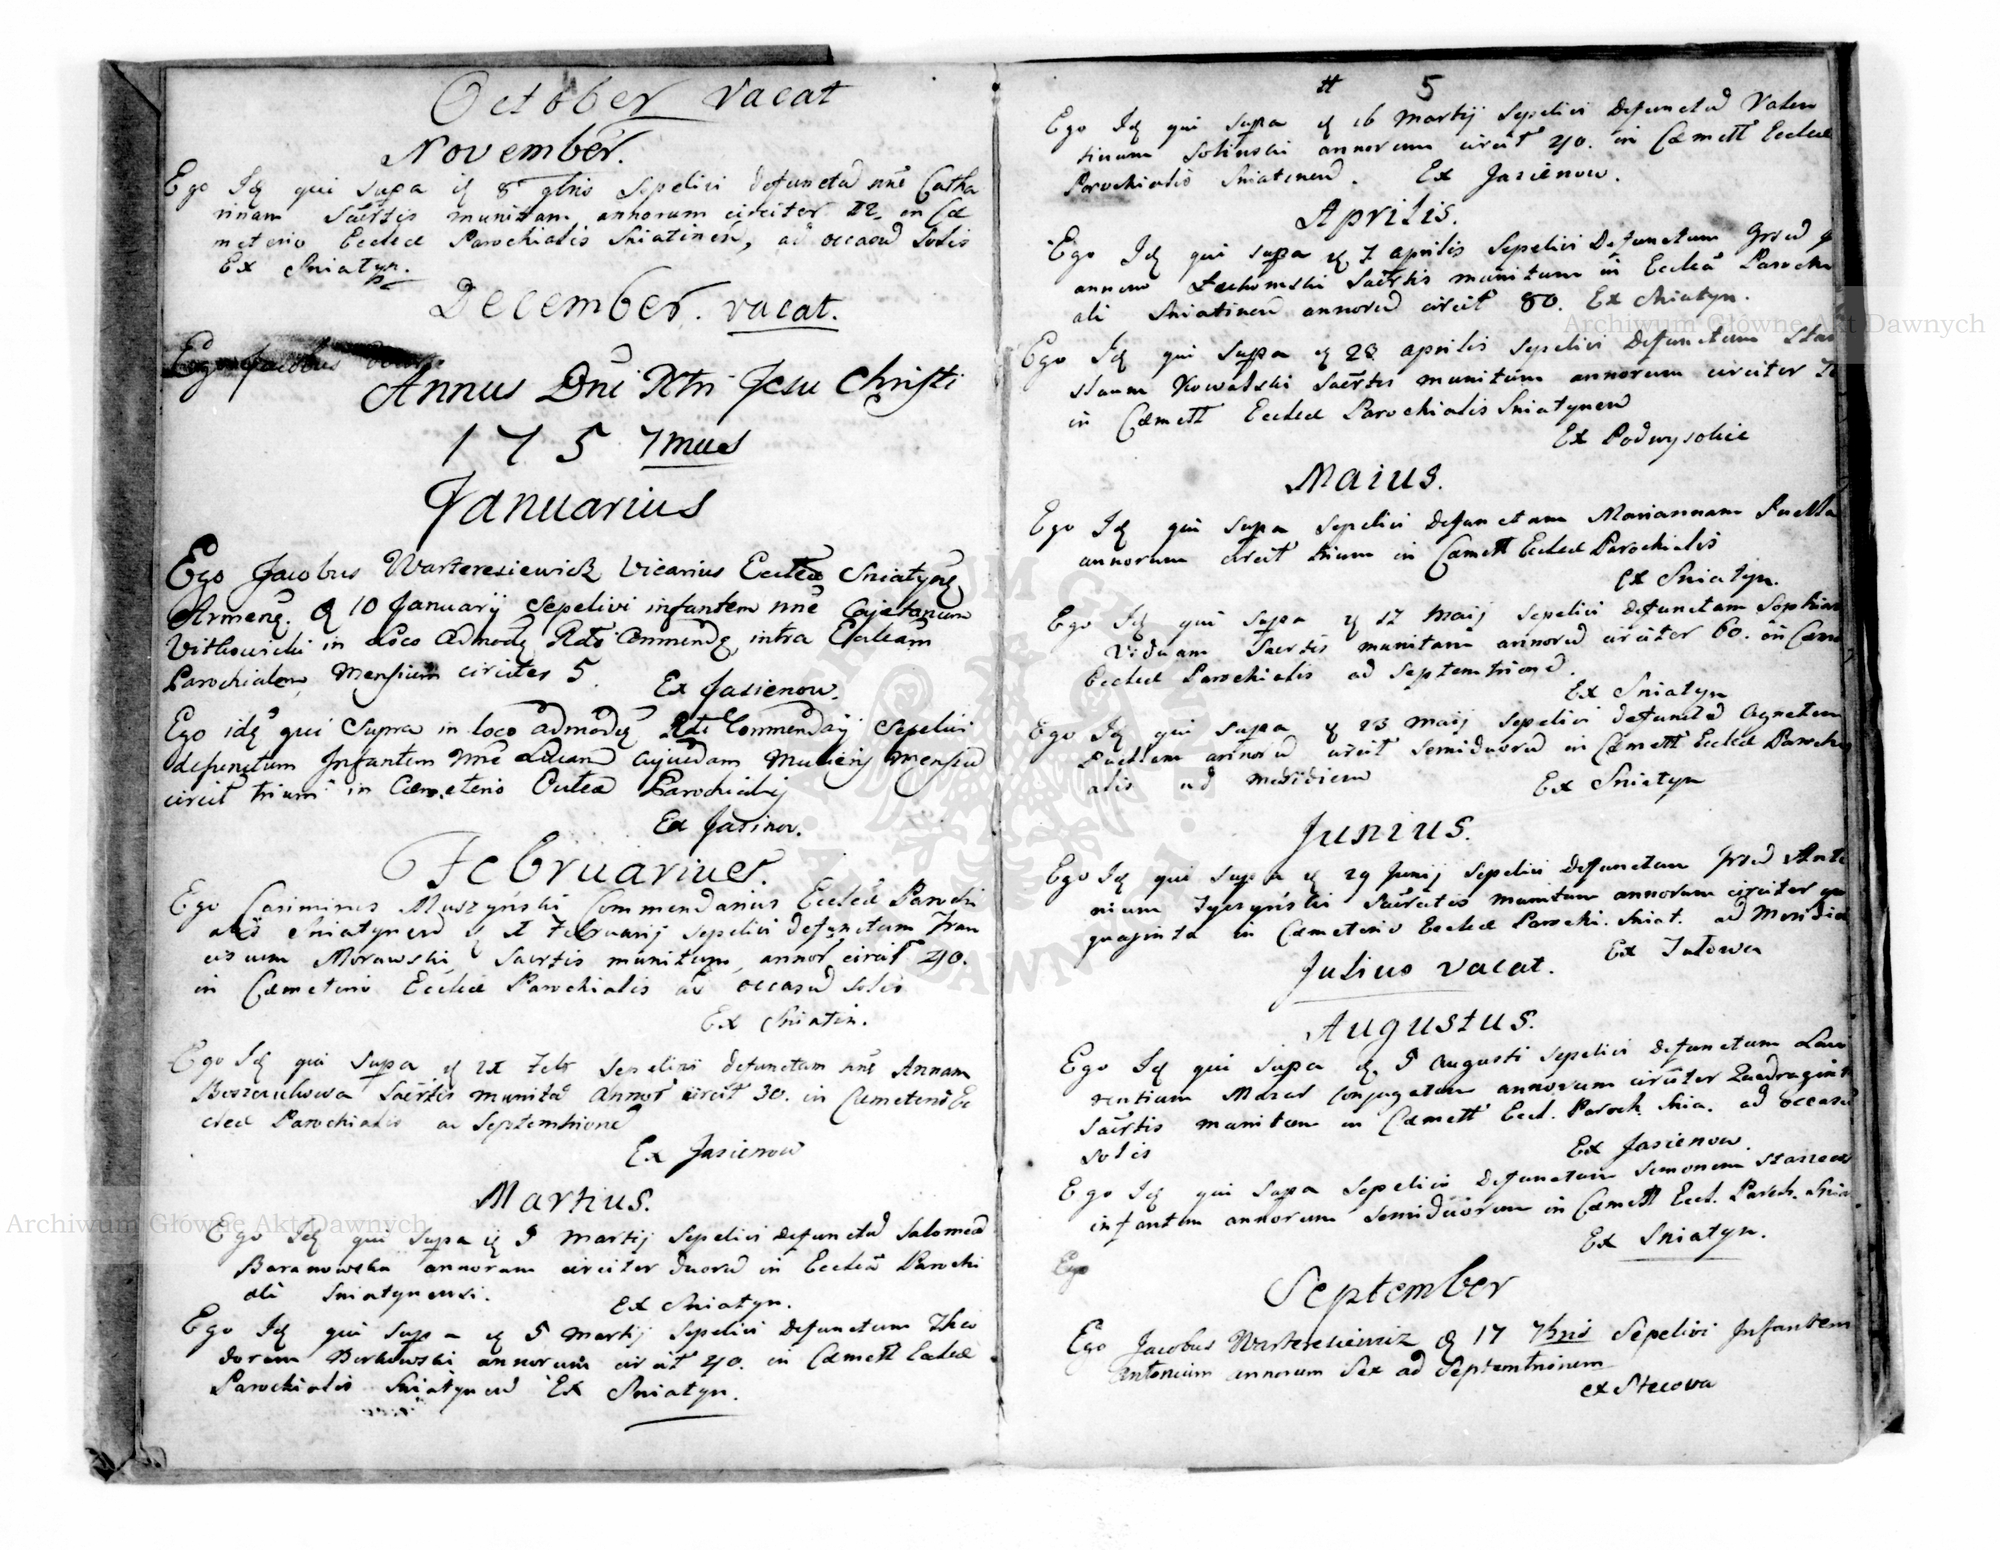 October vacat
November.
Ego Idq qui supa q 8 gbris sepelivi defunctã nñe Catha
rinam Sacrtis munitam, annorum circiter 12. in Cæ
meterio Eccleæ Parochialis Sniatineñ, ad occasũ Solis
Ex Sniatyn.
December. vacat.
Ego Jacobus
Annus Dñi Ñtri Jesu Christi
1757mus
Januarius
Ego Jacobus Warteresiewicz Vicarius Eccleæ Sniatynq
Armenq. q 10 Januarij sepelivi infantem nñe Cajetanum
Vitkowicki in Loco admodq Rdo Commendq intra Ecleam
Parochialem, Mensium circiter 5.
Ex Jasienow.
Ego idq qui Supra in loco admodq Rdi Commendarij Sepelivi
defunctum Infantem Nñe cujusdam Mulieris mensiũ
circit trium in Cæmeterio Ecleæ Parochialis
Ex Jasinov.
Februarius.
Ego Casimirus Muszyński Commendarius Eccleæ Parochi
alis Sniatynen q Februarij sepelivi defunctum Fran
ciscum Morawski, Sacrtis munitum, annor circit 40.
in Cæmeterio Eccleæ Parochialis ad occasũ solis
Ex Sniatin.
Ego Idq qui supa q Feb sepelivi defunctam nñe Annam
Sacrtis munitã annor circit 30. in Cæmeterio Ec
cleæ Parochialis ad Septemtrionẽ
Ex Jasienow
Martius.
Ego Idq qui supa q 5 Martij sepelivi defunctã Salomeã
Baranowska annorum circiter duorũ in Eccleã Parochi
ali Sniatynensi.
Ex Sniatyn.
Ego Idq qui supa q 5 Martij sepelivi defunctum Theo
dorum Borkowski annorum circit 40. in Cæmett Eccleæ
Parochialis Sniatyneñ Ex Sniatyn.
# 5
Ego Idq qui supa q 16 Martij sepelivi defunctũ Valen
tinum Soliński annorum circit 40. in Cæmett Eccleæ
Parochialis Sniatineñ. Ex Jasienow.
Aprilis.
Ego Idq qui supa q 7 aprilis sepelivi defunctum Gnsũ
annem Sacrtis munitum in Eccleã Parochi
ali Sniatineñ annorũ circit 80. Ex Sniatyn.
Ego Idq qui supa q 28 aprilis sepelivi defunctum Stan
slaum Kowalski Sacrtis munitum annorum circiter
in Cæmett Eccleæ Parochialis Sniatyneñ
Ex Podwysokie
Maius.
Ego Idq qui supa sepelivi defunctam Mariannam Puella
annorum circit trium in Cæmett Eccleæ Parochialis
ex Sniatyn.
Ego Idq qui supa q 12 Maij sepelivi defunctam Sophiam
Viduam Sacrtis munitam annorũ circiter 60. in Cæm
Eccleæ Parochialis ad Septemtrionẽ.
Ex Sniatyn
Ego Idq qui supa q 23 Maij sepelivi defunctã Agnetem
Puellam annorũ circit semiduorũ in Cæmett Eccleæ Parochi
alis ad meridiem
Ex Sniatyn
Junius.
Ego Idq qui supa q 29 Junij sepelivi defunctum Gnsũ Anto
nium Sacrtis munitum annorum circiter
quaginta in Cæmeterio Eccleæ Parochi. Sniat. ad Meridie
Ex Tulowa
Julius vacat.
Augustus.
Ego Idq qui supa q. 9 Augusti sepelivi defunctum Lau
rentium Mazur Conjugatum annorum circiter Quadragint
Sacrtis munitum in Cæmett Eccl. Paroch. Snia. ad occasũ
solis
Ex Jasienow.
Ego Idq qui supa sepelivi defunctum Simonem
infantem annorum semiduorum in Cæmett Eccl. Paroch. Snia
Ex Sniatyn.
Ego
September
Ego Jacobus Warteresiewicz q 17 7bris Sepelivi Infantem
Antonium annorum Sex ad Septemtrionem
ex Stecova
Archiwum Główne Akt Dawnych
Archiwum Główne Akt Dawnych